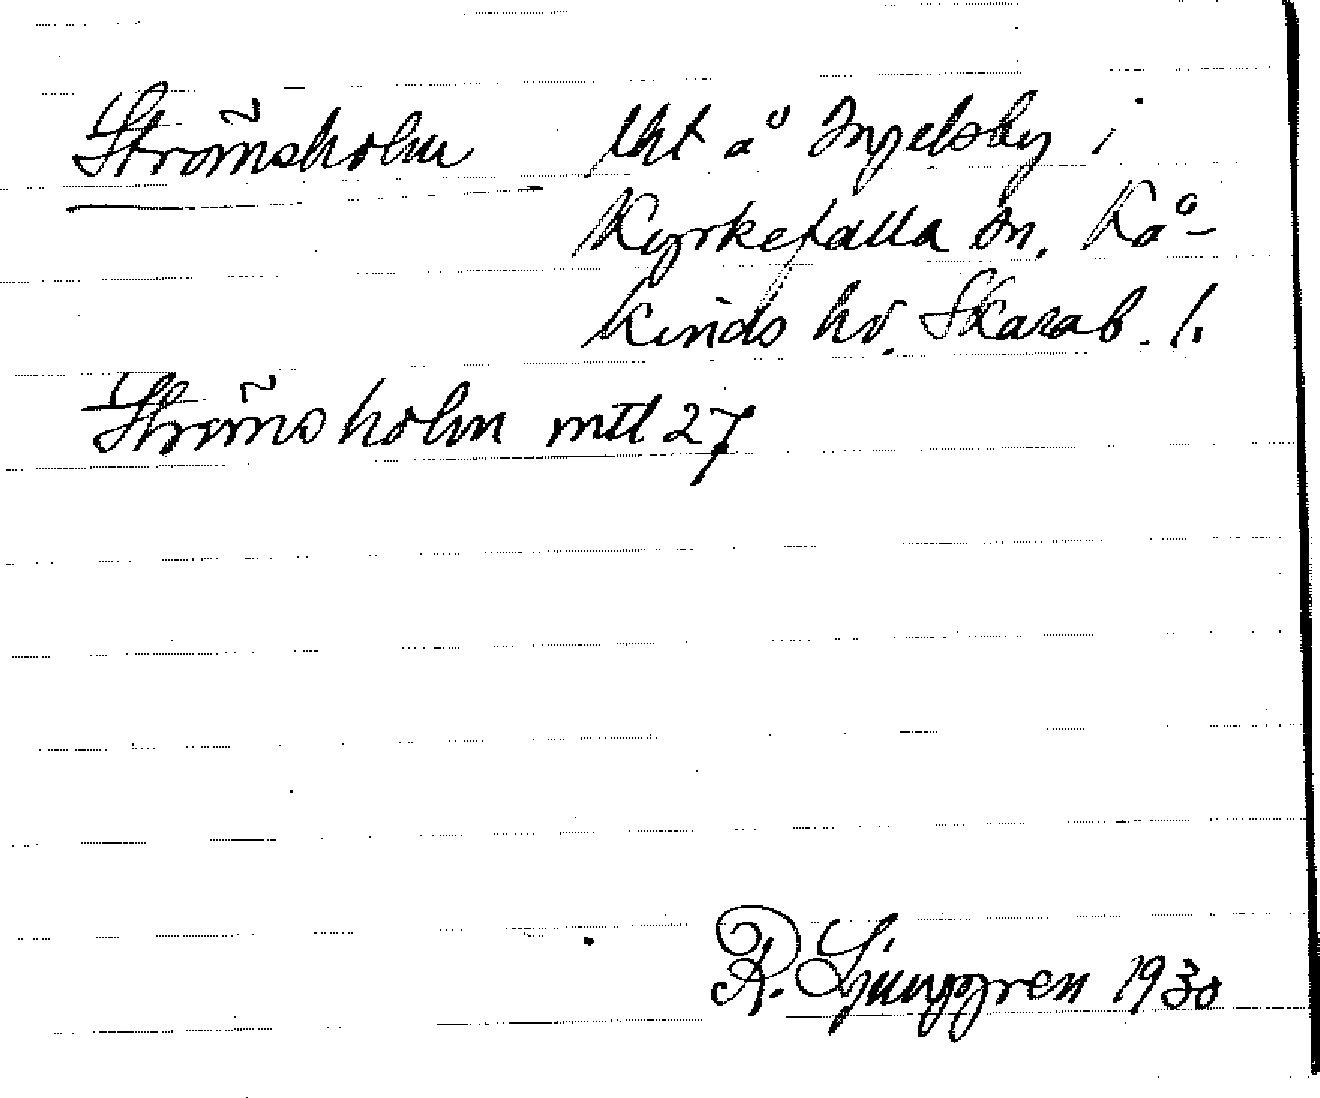 Strömsholm lht å Ingelsby i
Kyrkefalla sn. Kå-
kinds hd. Skarab. l.
Strömsholm mtl 27
R. Ljunggren 1930